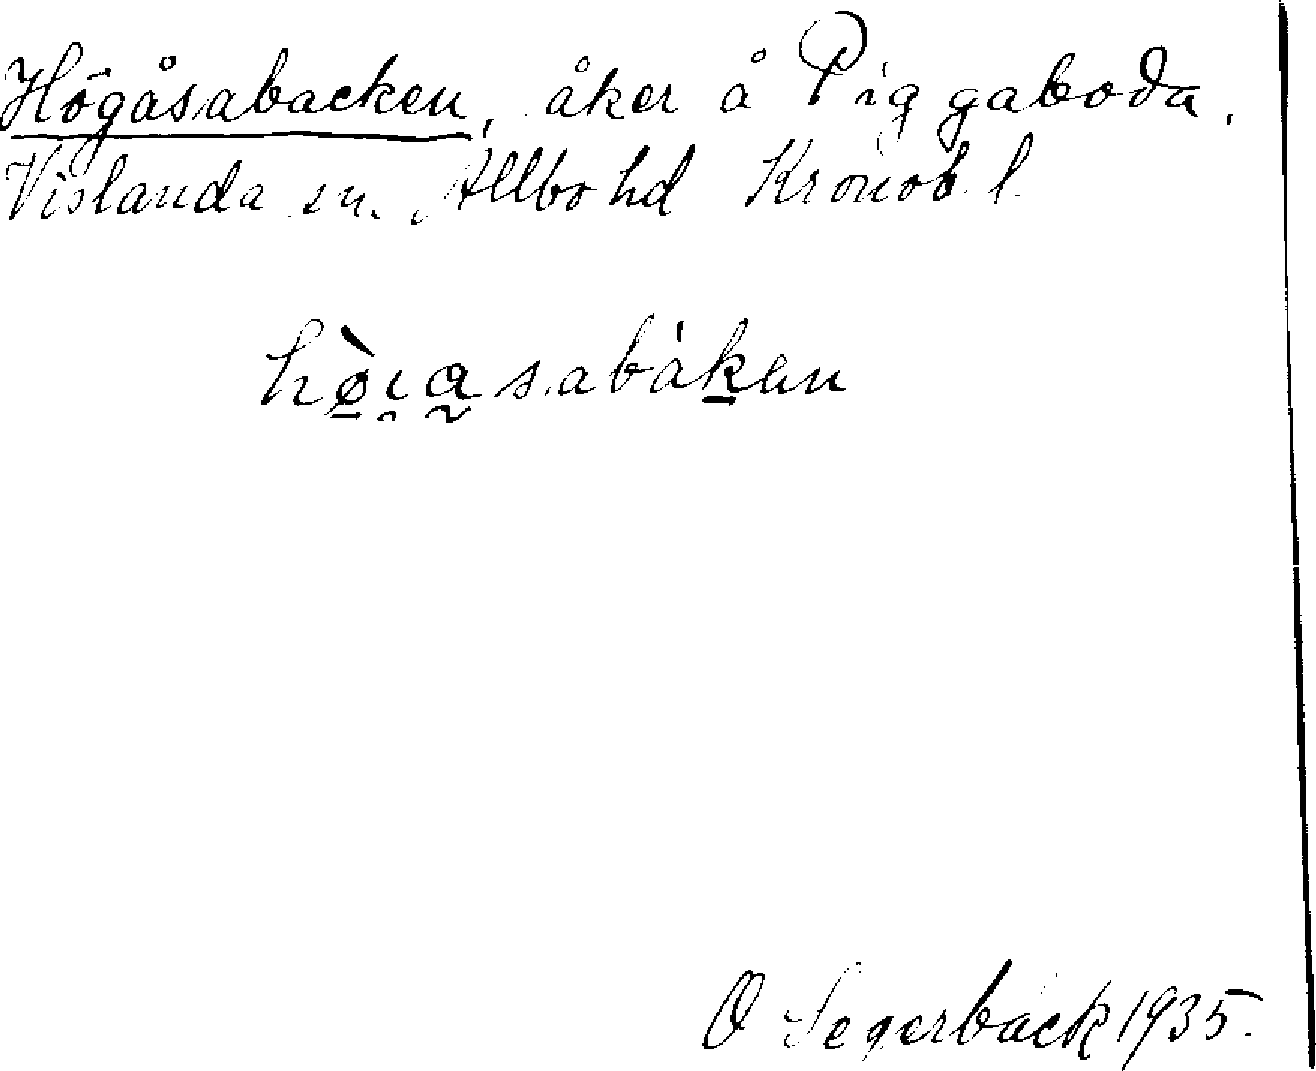 Högåsabacken, åker å Piggaboda,
Vislanda sn. Allbo hd Kronob. l.
hø̀ıasabáken
O Segerbäck 1935.